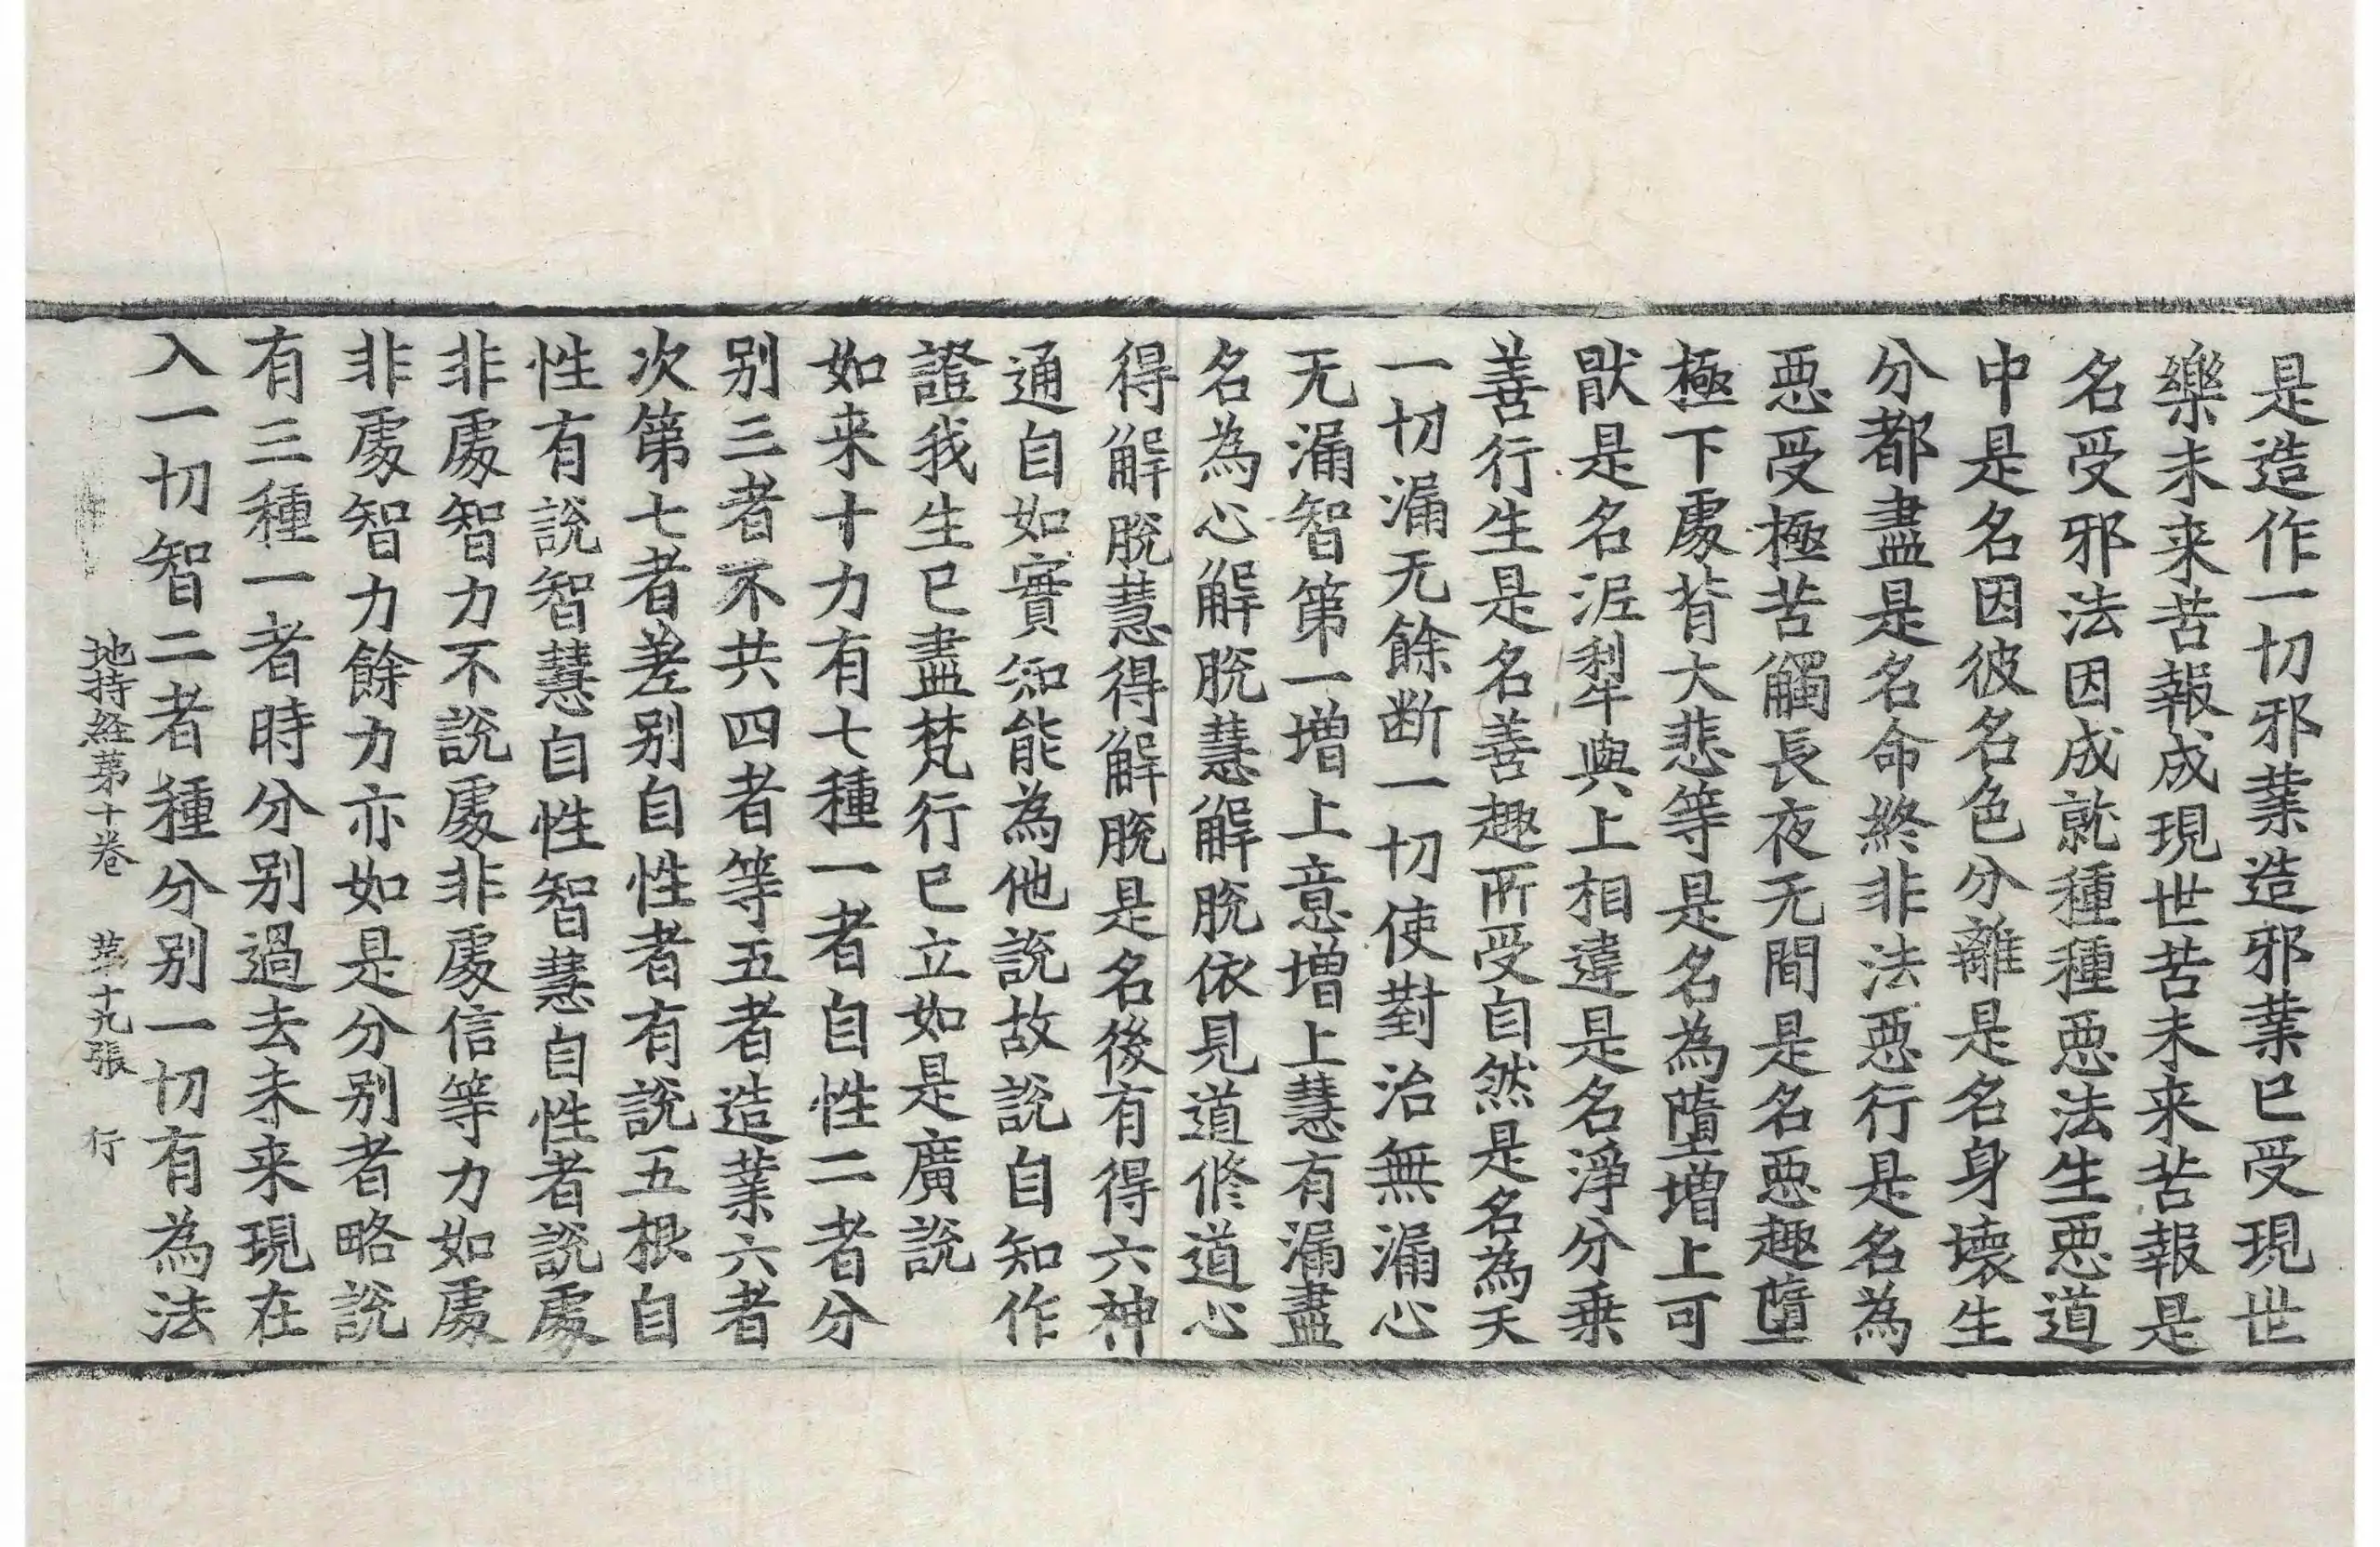 是造作一切邪業造邪業已受現世
樂未来苦報成現世苦未来苦報是
名受邪法因成就種種惡法生惡道
中是名因彼名色分離是名身壞生
分都盡是名命終非法惡行是名為
惡受極苦觸長夜无間是名惡趣墮
極下處背大悲等是名為墮増上可
猒是名泥犁與上相違是名淨分乗
善行生是名善趣所受自然是名為天
一切漏无餘断一切使對治無漏心
无漏智第一増上意増上慧有漏盡
名為心解脫慧解脫依見道修道心
得解脫慧得解脫是名後有得六神
通自如實知能為他說故說自知作
證我生已盡梵行已立如是廣說
如来十力有七種一者自性二者分
别三者不共四者等五者造業六者
次第七者差别自性者有說五根自
性有說智慧自性智慧自性者說處
非處智力不說處非處信等力如處
非處智力餘力亦如是分别者略說
有三種一者時分别過去未来現在
入一切智二者種分别一切有為法
地持経苐十卷　苐十九張　行